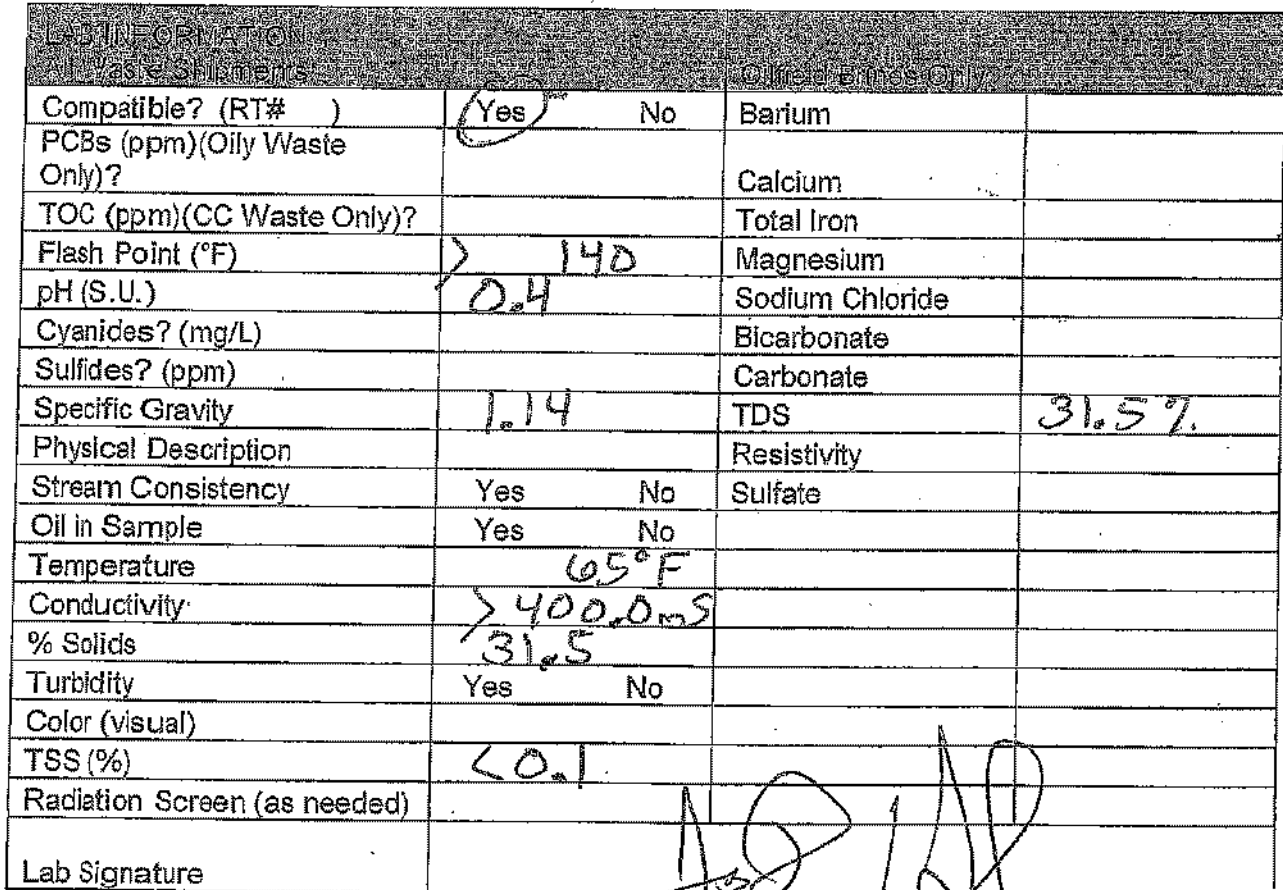 LAB INFORMATION
All Waste Shipments Oilfield Brines Only
Compatible? (RT# ) Yes No Barium
PCBs (ppm)(Oily Waste
Only)? Calcium
TOC (ppm)(CC Waste Only)? Total Iron
Flash Point (°F) > 140 Magnesium
pH (S.U.) 0.4 Sodium Chloride
Cyanides? (mg/L) Bicarbonate
Sulfides? (ppm) Carbonate
Specific Gravity 1.14 TDS 31.5%
Physical Description Resistivity
Stream Consistency Yes No Sulfate
Oil in Sample Yes No
Temperature 65°F
Conductivity >400.0mS
% Solids 31.5
Turbidity Yes No
Color (visual)
TSS (%) <0.1
Radiation Screen (as needed)
Lab Signature